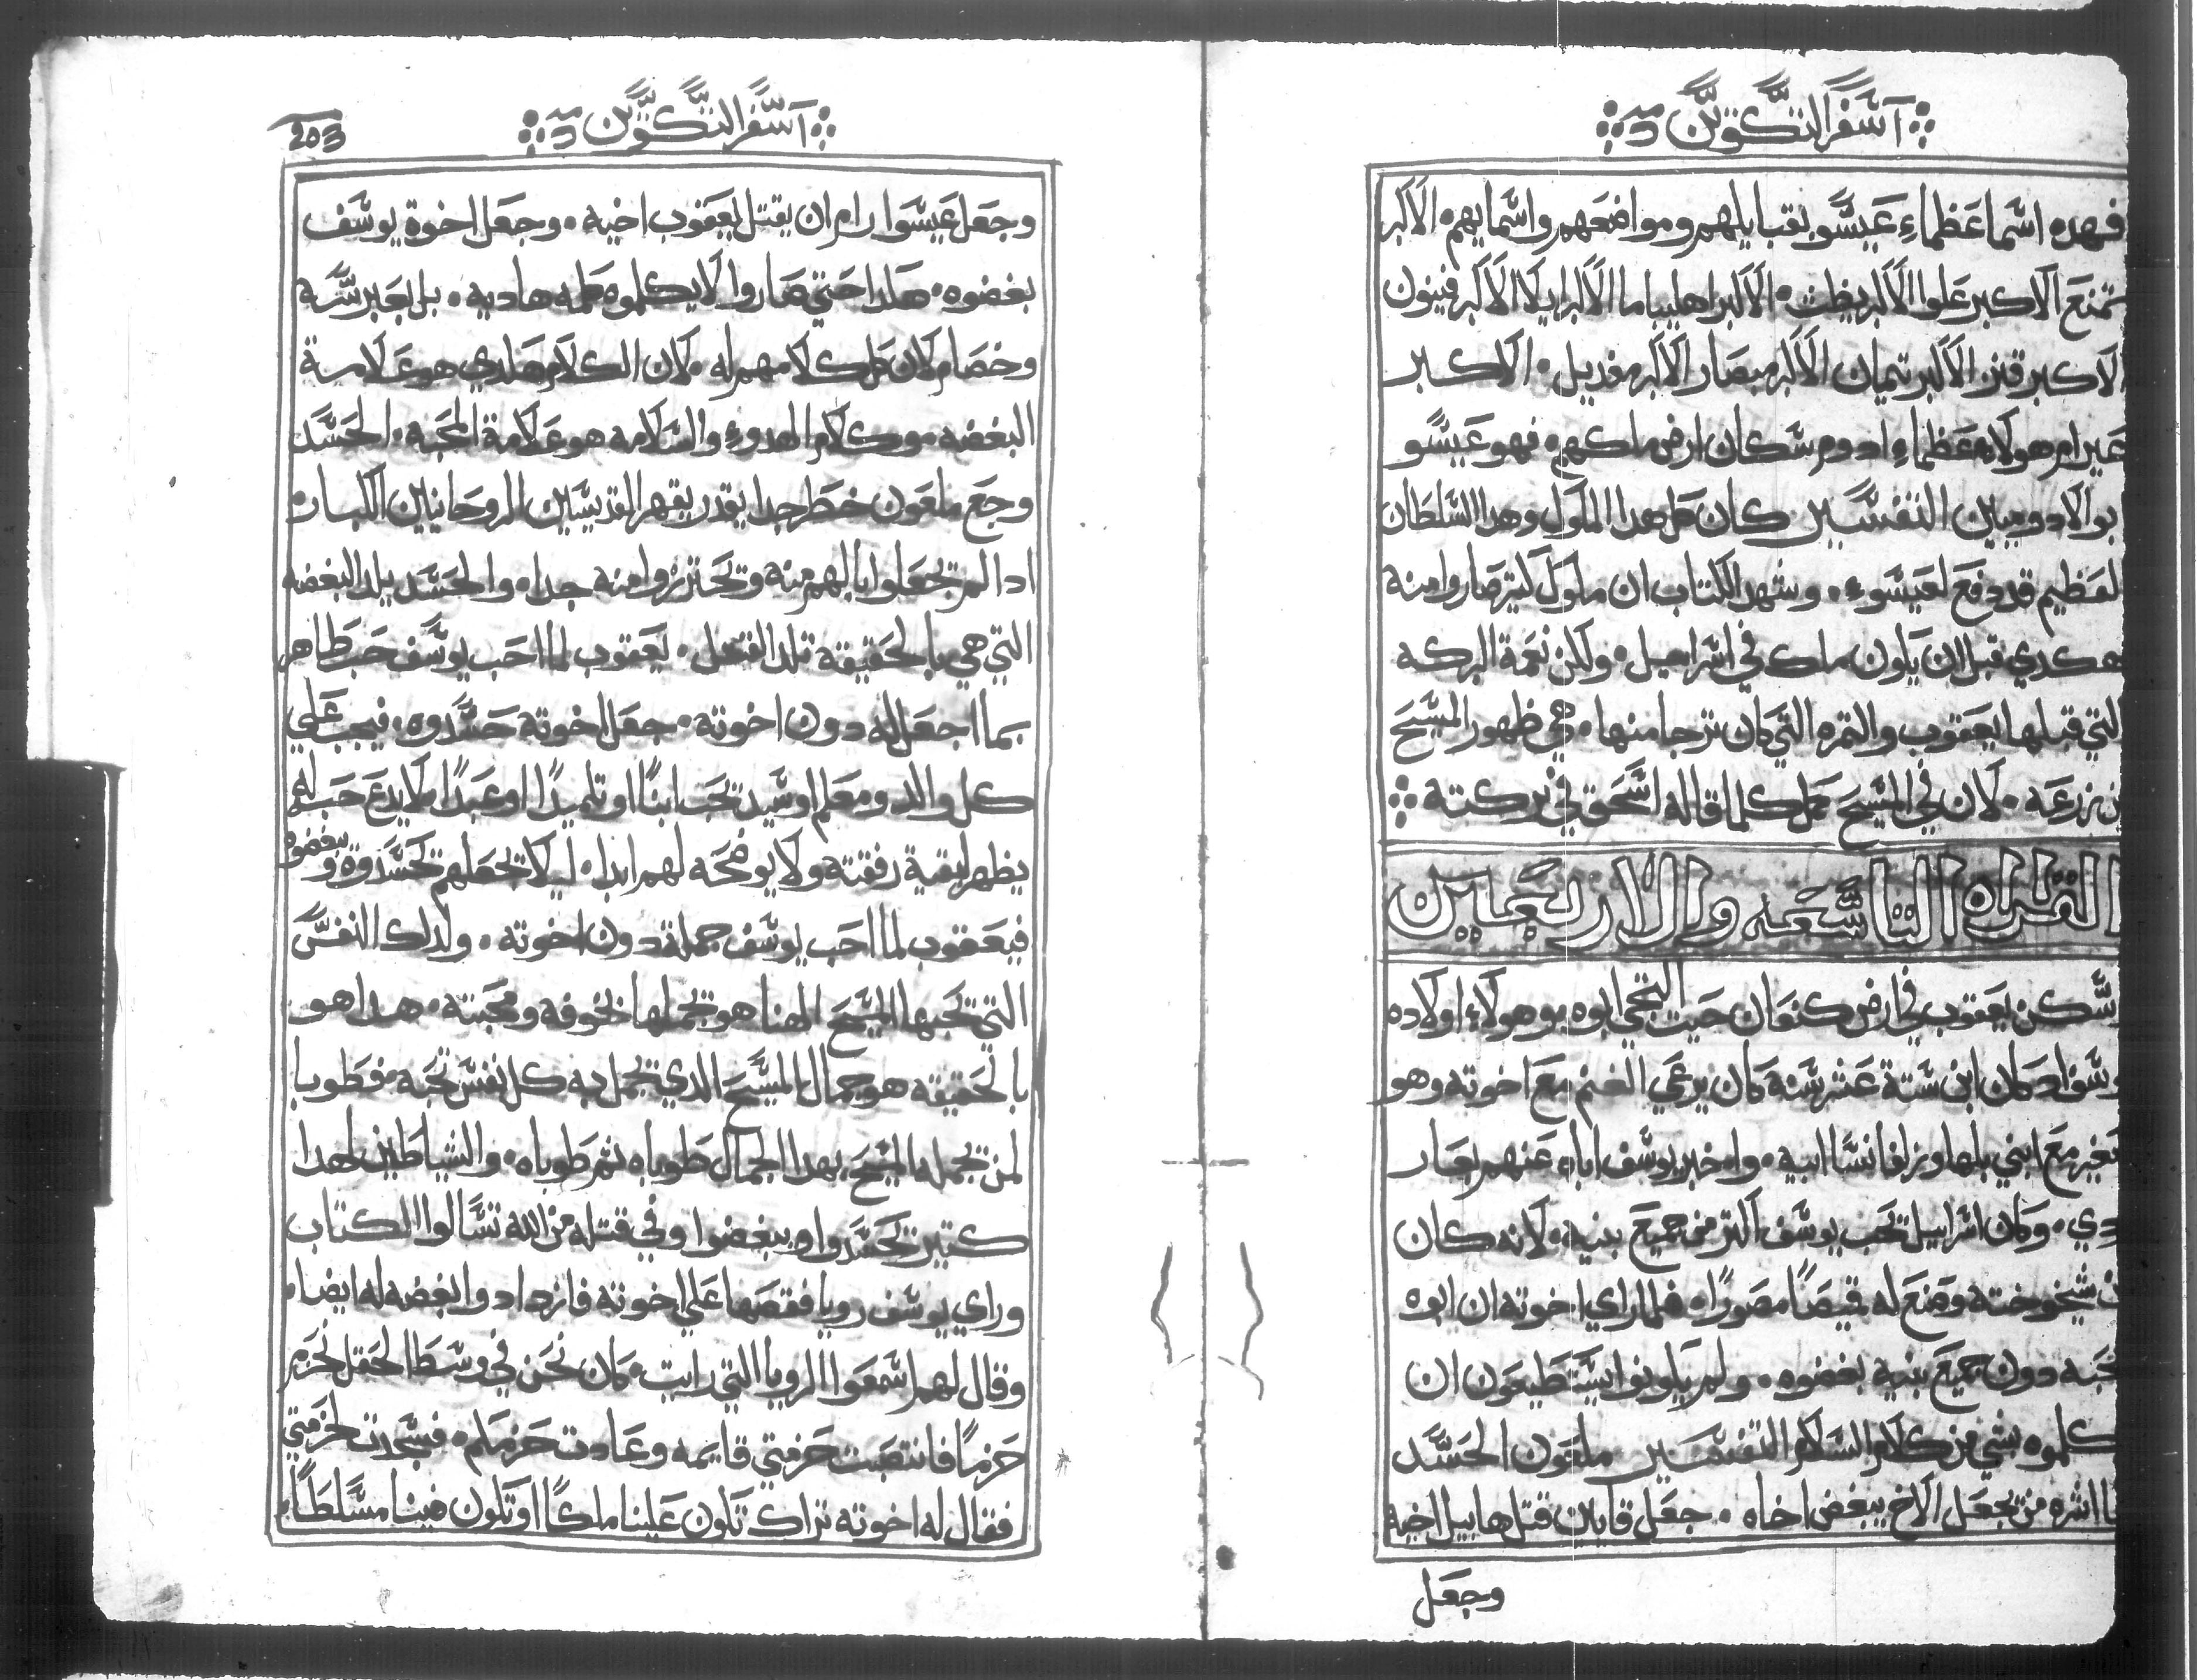 سفر التكوين
فهده اسما عظماء عيسو بقبايلهم ومواضعهم واسمايهم. الاكبر
تمنع الاكبر علوا الاكبر يظت. الاكبر اهليباما الاكبر ايلا الاكبر فينون
الاكبر قنز الاكبر تيمان الاكبر مبصار الاكبر مغديل. الاكبر
عيرام هولاء عظماء ادوم سكان ارض ملكهم. فهو عيسو
بو الادوميين التفسير كان كل هدا الملوك وهدا السلطان
لعظيم قد دفع لعيسوء. وشهد الكتاب ان ملوك كتير صاروا منه
هكدي قبل ان يكون ملك في اسراييل. ولكن نعمة البركه
لتي قبلها يعقوب والتمره التي كان يترجا منها. هي ظهور المسيح
من زرعه. لان في المسيح كمل كلما قاله اسحق في بركته
القراه التاسعه والاربعين
وسكن يعقوب في ارض كنعان حيت التجي ابوه وهولاء اولاده
يوسف اد كان ابن ستة عشر سنه كان يرعي الغنم مع اخوته وهو
صغير مع ابني بلها وزلفا نسا ابيه. واخبر يوسف اباه عنهم بعار
ردي. وكان اسراييل تحب يوسف اكتر من جميع بنيه. لانه كان
ابن شيخوخته وصنع له قميصًا مصورًا. فلما راي اخوته ان ابوه
تحبه دون جميع بنيه بغضوه. ولم يكونوا يستطيعون ان
يكلموه بشي من كلام السلام التفسير ملعون الحسد
ما اشره من تجعل الاخ يبغض اخاه. جعل قايين قتل هابيل اخيه
وجعل
203
سفر التكوين
وجعل عيسوا رام ان يقتل يعقوب اخيه. وجعل اخوة يوسف
بغضوه. هكدا حتي صاروا لا يكلموه كلمه هاديه. بل بعبر سره
وخصام كان كل كلامهم له. لان الكلام هكدي هو علامة
البغضه. وكلام الهدوء والسلامه هو علامة المحبه. الحسد
وجع ملعون خطر جدا يقدر يقهر القديسين الروحانيين الكبار
ادا لم تجعلوا بالهم منه وتحترزوا منه جدا. والحسد يلد البغضه
التي هي بالحقيقه تلد القتل. يعقوب لما احب يوسف حب ظاهر
بما اجعل له دون اخوته. جعل اخوته حسدوه. فيجب علي
كل والد ومعلم اوسيد تحب ابنًا او تلميدًا او عبدًا لا يدع حبه له
يظهر لبقية رفقته ولا يوضحه لهم ابدا. ليلا تجعلهم تحسدوه ويبغضوه
فيعقوب لما احب يوسف جمله دون اخوته. ولدلك النفس
التي تحبها المسيح الهنا هو تجملها بخوفه ومحبته. هدا هو
بالحقيقه هو جمال المسيح الدي تجمل به كل نفس تحبه. فطوبا
لمن تجمله المسيح بهدا الجمال طوباه تم طوباه. والشياطين لهدا
كتير تحسدوا ويبغضوا وفي قتله من الله تسالوا الكتاب
وراي يوسف رويا فقصها علي اخوته فازدادوا بغضه له ايضا.
وقال لهم اسمعوا الرويا التي رايت. كان نحن في وسط الحقل نحزم
حزمًا فانتصبت حزمتي قايمه وعادت حزمكم. فسجدت لحزمتي
فقال له اخوته تراك تكون علينا ملكًا او تكون فينا مسلطًا